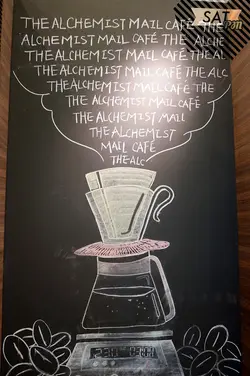 SAT
THE ALCHEMIST MAIL CAFÉ THE
ALCHEMIST MAIL CAFÉ THE ALCHE
THE ALCHEMIST MAIL CAFÉ THE AL
CHEMIST MAIL CAFÉ THE ALC
THE ALCHEMIST MAIL CAFÉ THE
THE ALCHEMIST MAIL CAFÉ
THE ALCHEMIST MAIL
THE ALCHEMIST
MAIL CAFÉ
THE ALC